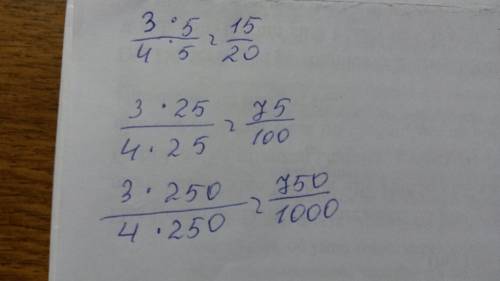 3 · 5 / 4 · 5 = 15 / 20
3 · 25 / 4 · 25 = 75 / 100
3 · 250 / 4 · 250 = 750 / 1000